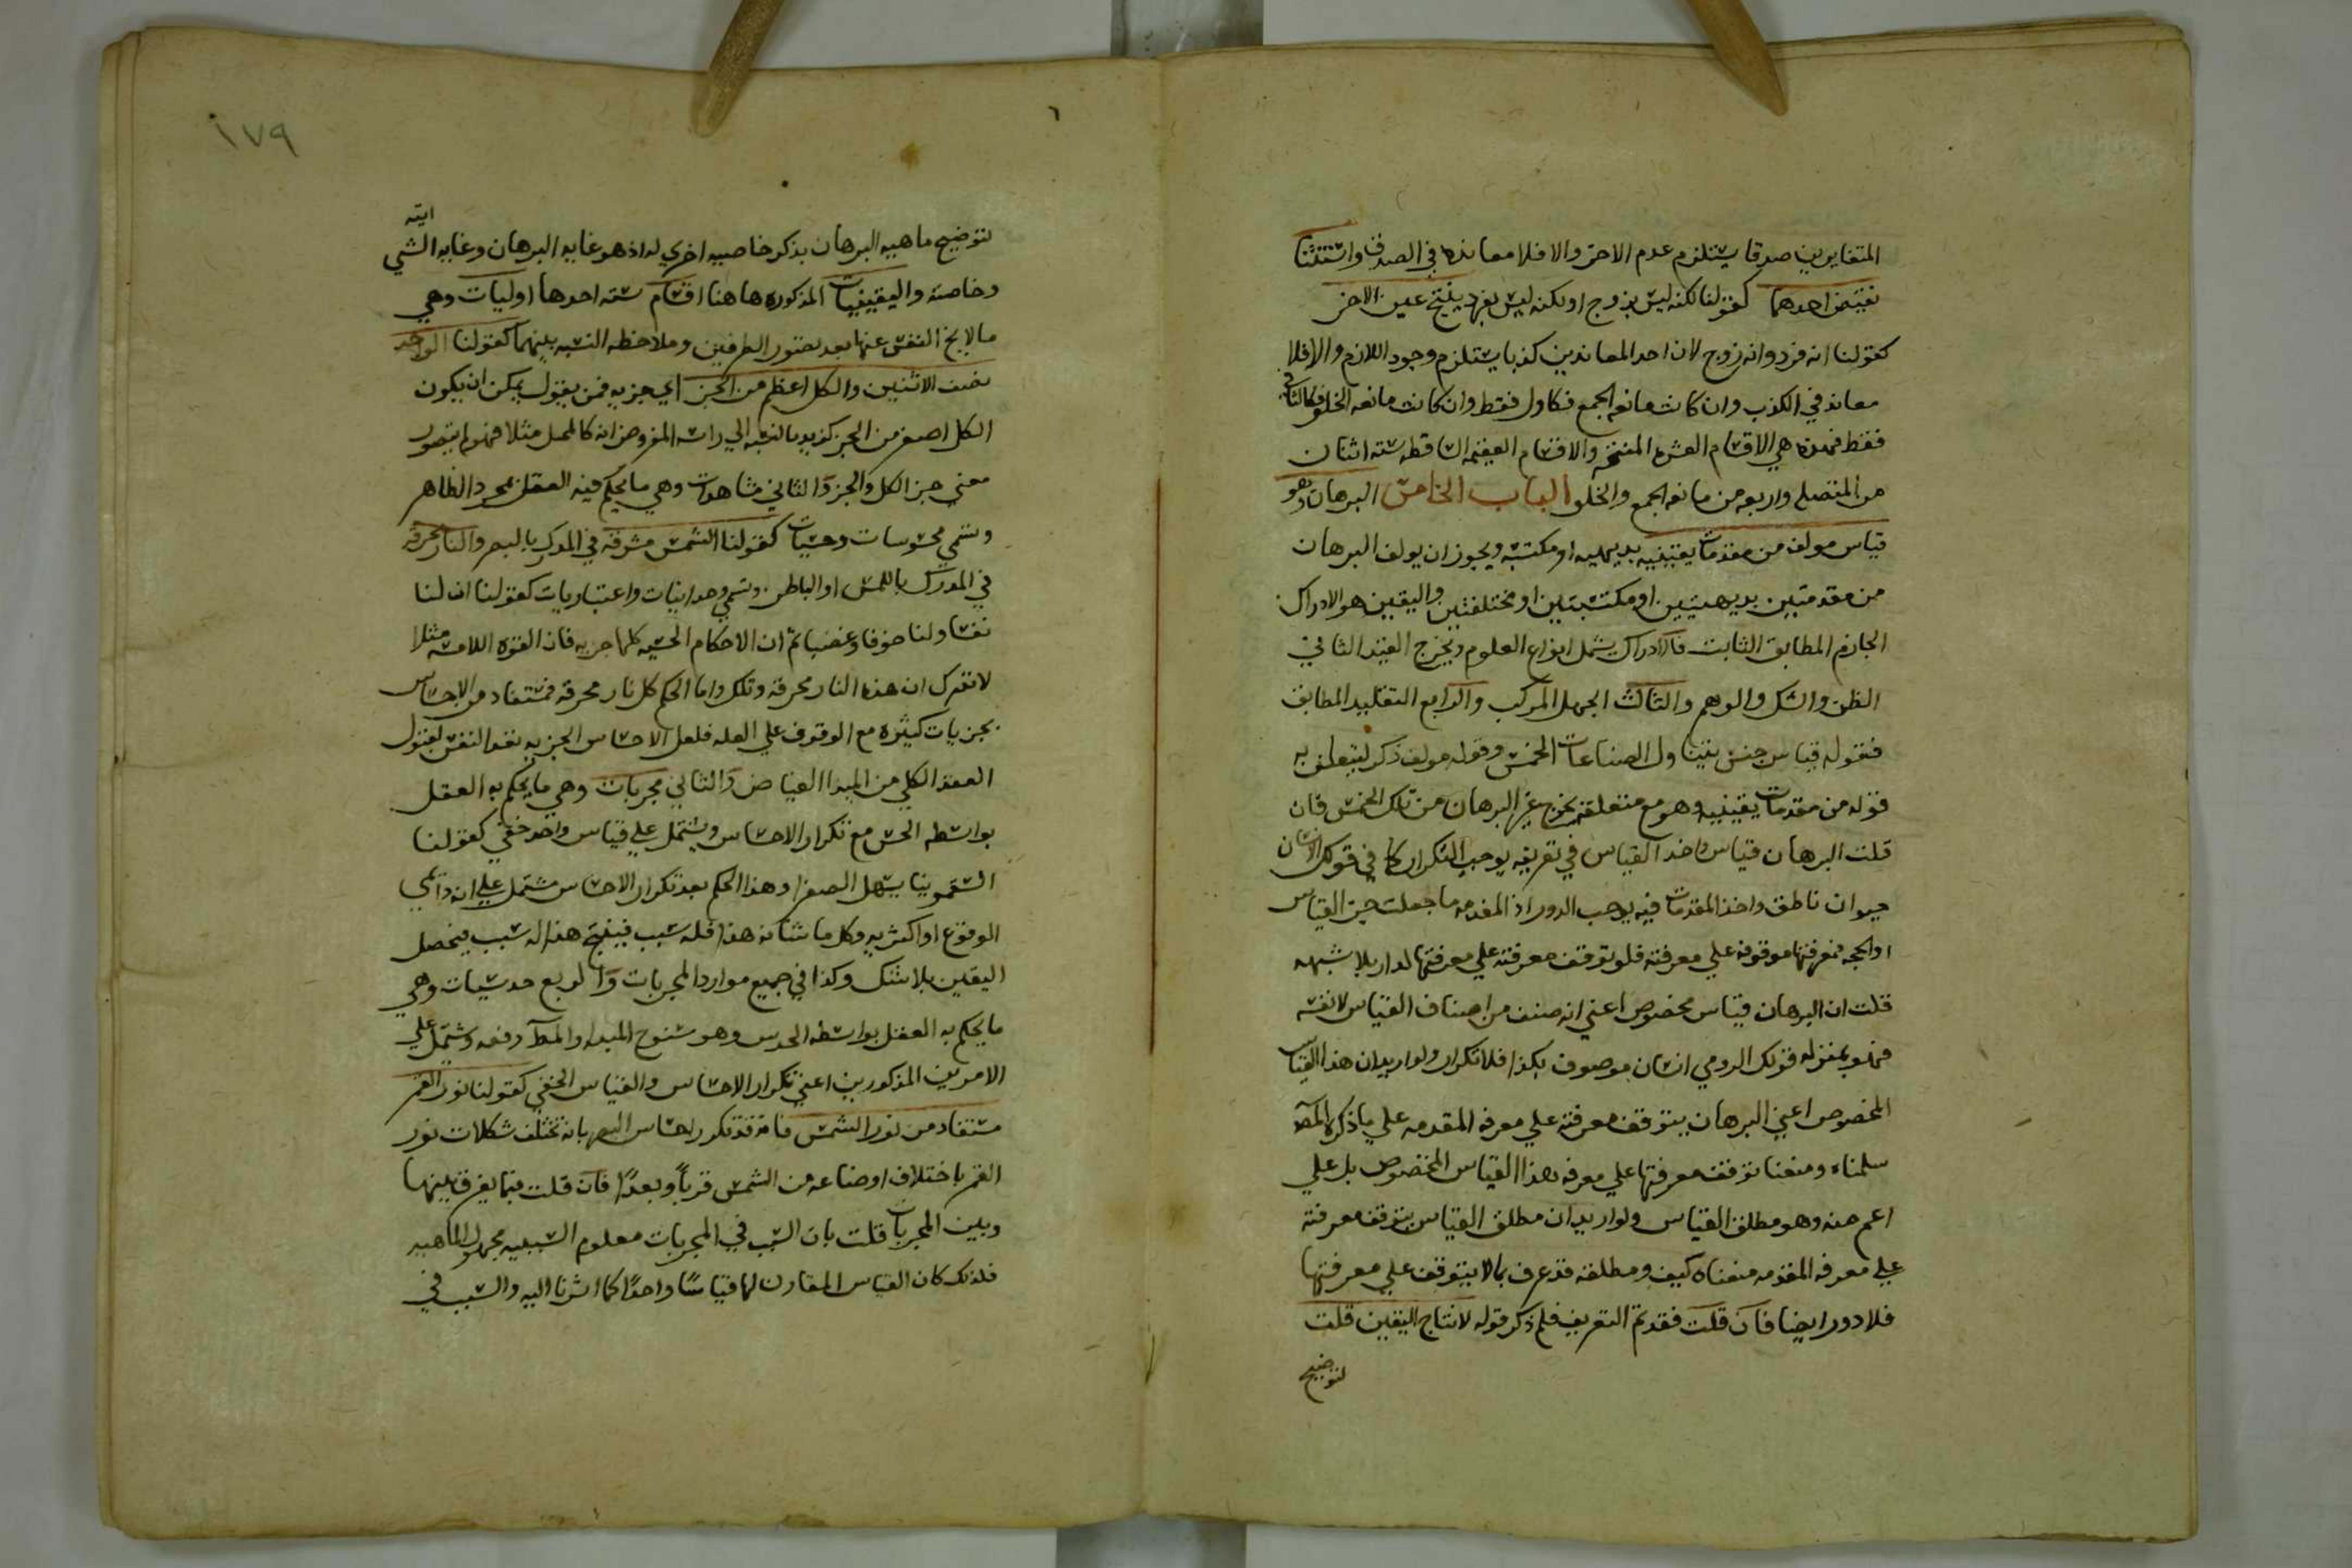 المتغايرين صدقا يستلزم عدم الاخر والا فلا معانده في الصدق واستثنا
نقيض احدهما كقولنا لكنه ليس بزوج او لكنه ليس بفرد ينتج عين الاخر
كقولنا انه فرد وانه زوج لان احد المعاندين كذبا يستلزم وجود اللازم والا فلا
معاند في الكذب وان كانت مانعه الجمع فكاول فقط وان كانت مانعه الخلو فكالثاني
فقط فهذه هي الاقسام العشره المنتجه والاقسام العقيمه الساقطه سته اثنان
من المتصله واربعه من مانعه الجمع والخلو الباب الخامس البرهان وهو
قياس مولف من مقدمات يقينيه بديهيه او مكتسبه ويجوز ان يولف البرهان
من مقدمتين بديهيتين او مكتسبتين او مختلفتين واليقين هو الادراك
الجازم المطابق الثابت فالادراك يشمل انواع العلوم ويخرج القيد الثاني
الظن والشك والوهم والثالث الجهل المركب والرابع التقليد المطابق
فقوله قياس جنس يتناول الصناعات الخمس وقوله مولف ذكر ليتعلق به
قوله من مقدمات يقينيه وهو مع متعلقه يخرج غير البرهان من تلك الخمس فان
قلت البرهان قياس واخذ القياس في تعريفه يوجب التكرار كما في قولك الانسان
حيوان ناطق واخذ المقدمات فيه يوجب الدور اذ المقدمه ما جعلت جزء القياس
او الحجه فمعرفتها موقوفه علي معرفته فلو توقف معرفته علي معرفتها لدار بلا شبهه
قلت ان البرهان قياس مخصوص اعني انه صنف من اصناف القياس لا نفسه
فهو بمنزله قولك الرومي انسان موصوف بكذا فلا تكرار ولو اريد ان هذا القياس
المخصوص اعني البرهان يتوقف معرفته علي معرفه المقدمه علي ما ذكره المص
سلمناه ومنعنا توقف معرفتها علي معرفه هذا القياس المخصوص بل علي
اعم منه وهو مطلق القياس ولو اريد ان مطلق القياس يتوقف معرفته
علي معرفه المقدمه منعناه كيف ومطلقه قد عرف بما لا يتوقف علي معرفتها
فلا دور ايضا فان قلت فقد تم التعريف فلم ذكر قوله لانتاج اليقين قلت
لتوضيح
١٧٩
٦
لتوضيح ماهيه البرهان بذكر خاصيه اخري له اذ هو غايه البرهان وغايه الشي
وخاصته واليقينيات المذكوره هاهنا اقسام سته احدها اوليات وهي
ما لا يخ النفس عنها بعد تصور الطرفين وملاحظه النسبه بينهما كقولنا الواحد
نصف الاثنين والكل اعظم من الجزء اي جزيه فمن يقول يمكن ان يكون
الكل اصغر من الجزء كيد بالنسبه الي راسه المفروض انه كالمحمل مثلا فهو لم يتصور
معني جزء الكل والجزء والثاني مشاهدات وهي ما يحكم فيه العقل بمجرد الظاهر
وتسمي محسوسات وحسيات كقولنا الشمس مشرقه في المدرك بالبصر والنار محرقه
في المدرك باللمس او الباطن وتسمي وجدانيات واعتباريات كقولنا ان لنا
نفسا ولنا خوفا وغضبا ثم ان الاحكام الحسيه كلها جزيه فان القوه اللامسه مثلا
لا تدرك ان هذه النار محرقه وتلك واما الحكم كل نار محرقه فمستفاد من الاحساس
بجزيات كثيره مع الوقوف علي العله فلعل الاحساس الجزيه تعد النفس لقبول
العقد الكلي من المبدا الفياض والثاني مجربات وهي ما يحكم به العقل
بواسطه الحس مع تكرار الاحساس ويشتمل علي قياس واحد خفي كقولنا
السقمونيا يسهل الصفرا وهذا الحكم بعد تكرار الاحساس مشتمل علي انه دائمي
الوقوع او اكثريه وكل ما شانه هذا فله سبب فينتج هذا له سبب فيحصل
اليقين بلا شك وكذا في جميع موارد المجربات والرابع حدسيات وهي
ما يحكم به العقل بواسطه الحدس وهو سنوح المبدا والمط دفعه ويشتمل علي
الامرين المذكورين اعني تكرار الاحساس والقياس الخفي كقولنا نور القمر
مستفاد من نور الشمس فانه قد تكرر احساس البصر بانه تختلف شكلات نور
القمر باختلاف اوضاعه من الشمس قرباً وبعداً فان قلت فيما يفرق بينها
وبين المجربات قلت بان السبب في المجربات معلوم السببيه مجهول الماهيه
فلذلك كان القياس المقارن لها قياسًا واحدًا كما اشرنا اليه والسبب في